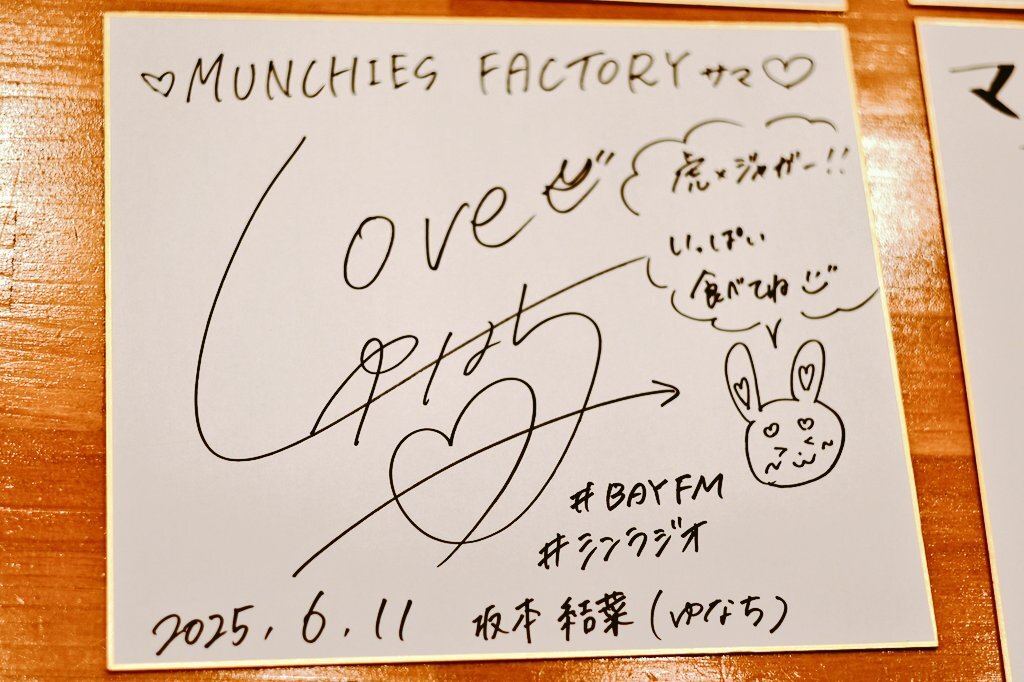 ♡MUNCHIES FACTORY サマ♡
Love
虎×ジャガー!!
いっぱい
食べてね
ゆなち
#BAYFM
#シンラジオ
2025.6.11 坂本結菜(ゆなち)
マ